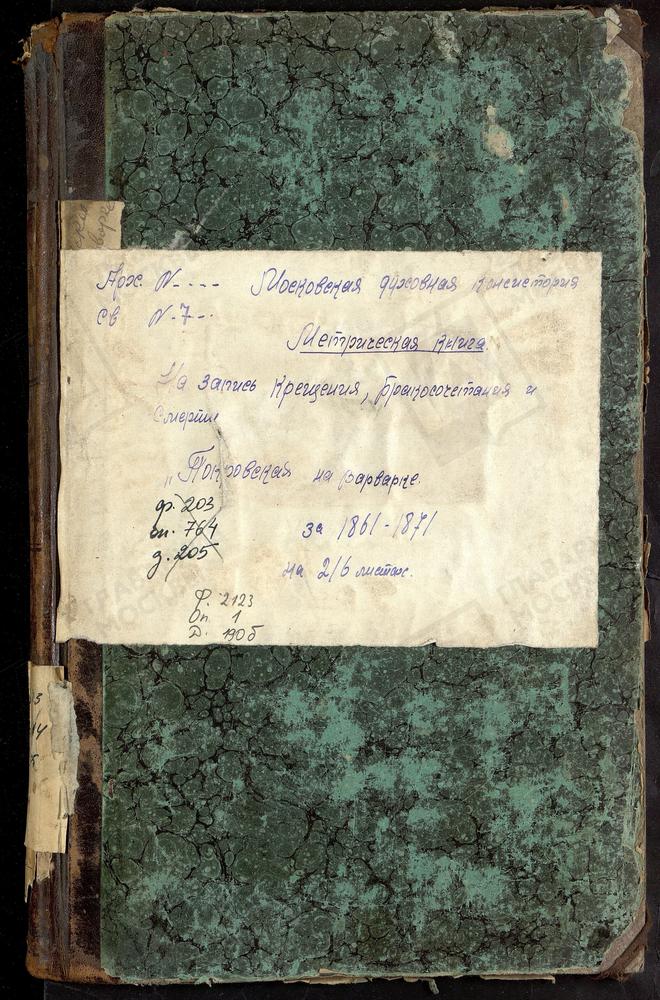 Арх. N---- Московская духовная консистория
св N-7-.
Метрическая книга.
На запись крещения, бракосочетания и
смерти
„Покровская на варварке.
ф. 203
оп. 764
д. 205
за 1861-1871
на 216 листах.
Ф. 2123
Оп. 1
Д. 190б